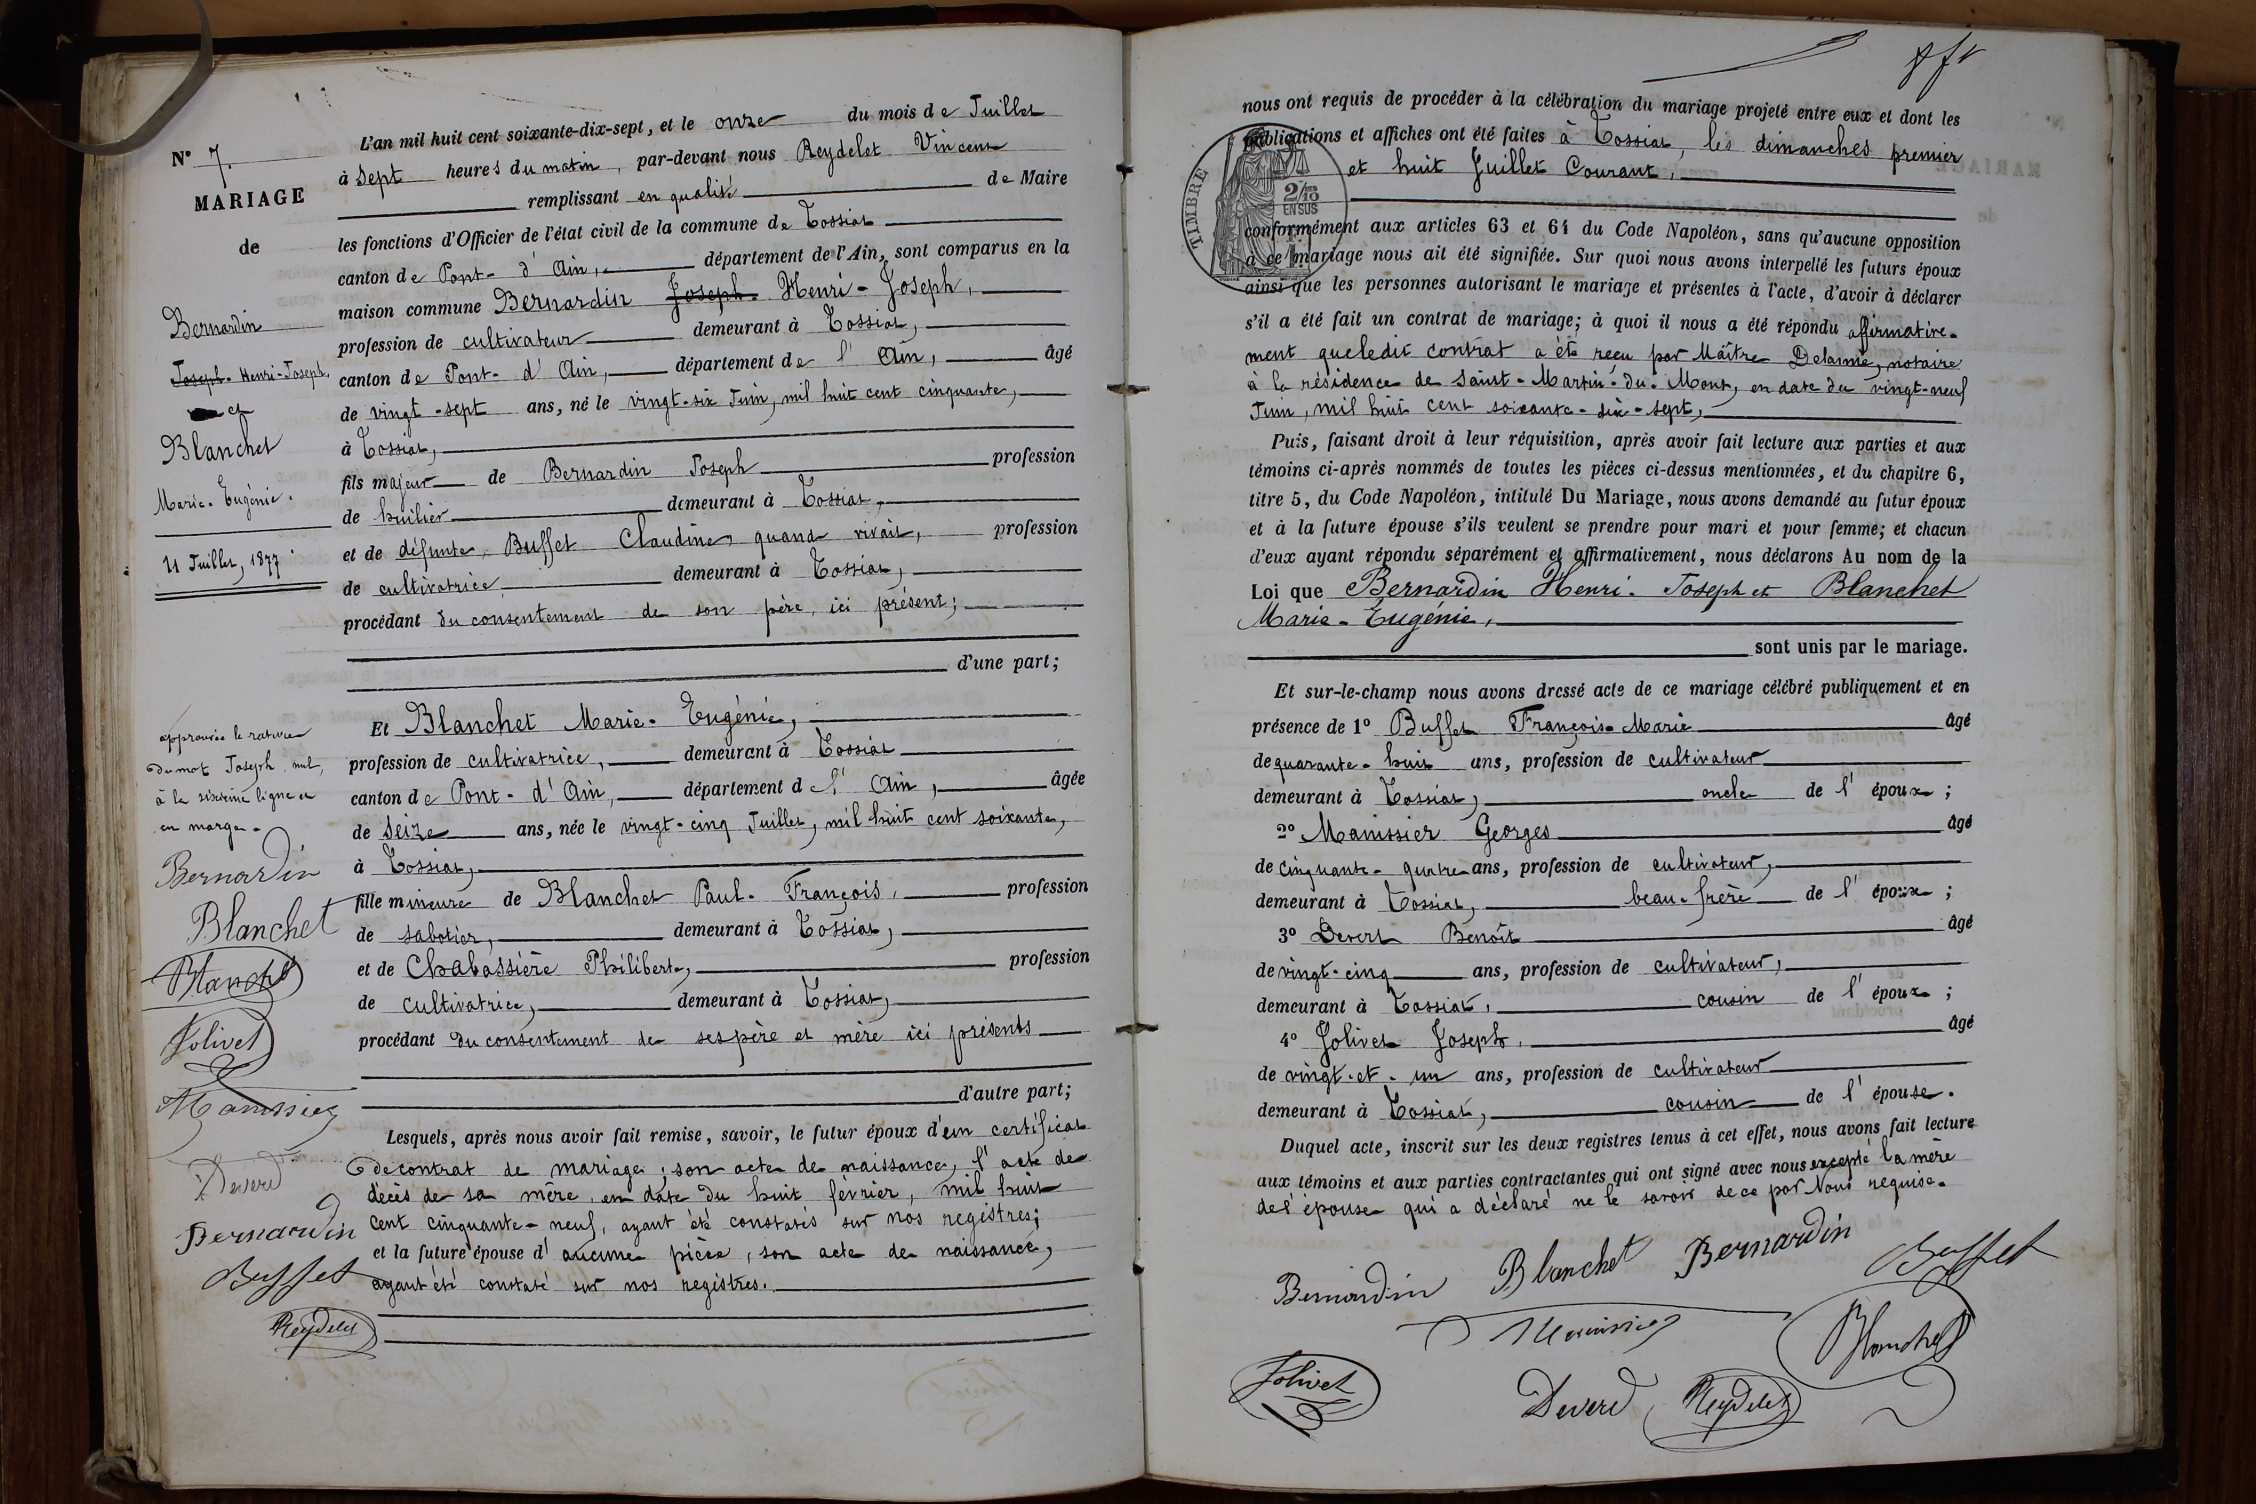 N° 7.
MARIAGE
de
Bernardin
Joseph. Henri-Joseph,
et
Blanchet
Marie-Eugénie.
11 Juillet, 1877
approuvée le rature
du mot Joseph nul,
à la sixième ligne et
en marge.
Bernardin
Blanchet
Blanchet
Jolivet
Manissier
Devert
Bernardin
Buffet
Reydelet
L'an mil huit cent soixante-dix-sept, et le onze du mois de Juillet
à sept heures du matin, par-devant nous Reydelet Vincent
remplissant en qualité de Maire
les fonctions d'Officier de l'état civil de la commune de Tossiat
canton de Pont-d'Ain, département de l'Ain, sont comparus en la
maison commune Bernardin Joseph. Henri-Joseph,
profession de cultivateur demeurant à Tossiat,
canton de Pont-d'Ain, département de l'Ain, âgé
de vingt-sept ans, né le vingt-six Juin, mil huit cent cinquante,
à Tossiat,
fils majeur de Bernardin Joseph profession
de huilier demeurant à Tossiat,
et de défunte, Buffet Claudine, quand vivait, profession
de cultivatrice demeurant à Tossiat,
procédant du consentement de son père, ici présent;
d'une part;
Et Blanchet Marie-Eugénie,
profession de cultivatrice, demeurant à Tossiat
canton de Pont-d'Ain, département de l'Ain, âgée
de seize ans, née le vingt-cinq Juillet, mil huit cent soixante,
à Tossiat,
fille mineure de Blanchet Paul-François, profession
de sabotier, demeurant à Tossiat,
et de Chabassière Philiberte, profession
de cultivatrice, demeurant à Tossiat,
procédant du consentement de ses père et mère ici présents
d'autre part;
Lesquels, après nous avoir fait remise, savoir, le futur époux d'un certificat
de contrat de mariage, son acte de naissance, l'acte de
décès de sa mère, en date du huit février, mil huit
cent cinquante-neuf, ayant été constatés sur nos registres;
et la future épouse d'aucune pièce, son acte de naissance,
ayant été constaté sur nos registres.
nous ont requis de procéder à la célébration du mariage projeté entre eux et dont les
publications et affiches ont été faites à Tossiat, les dimanches premier
et huit Juillet Courant,
TIMBRE
2/10
EN SUS
conformément aux articles 63 et 64 du Code Napoléon, sans qu'aucune opposition
à ce mariage nous ait été signifiée. Sur quoi nous avons interpellé les futurs époux
ainsi que les personnes autorisant le mariage et présentes à l'acte, d'avoir à déclarer
s'il a été fait un contrat de mariage; à quoi il nous a été répondu affirmative-
ment que ledit contrat a été reçu par Maître notaire
à la résidence de Saint-Martin-du-Mont, en date du vingt-neuf
Juin, mil huit cent soixante-dix-sept,
Puis, faisant droit à leur réquisition, après avoir fait lecture aux parties et aux
témoins ci-après nommés de toutes les pièces ci-dessus mentionnées, et du chapitre 6,
titre 5, du Code Napoléon, intitulé Du Mariage, nous avons demandé au futur époux
et à la future épouse s'ils veulent se prendre pour mari et pour femme; et chacun
d'eux ayant répondu séparément et affirmativement, nous déclarons Au nom de la
Loi que Bernardin Henri-Joseph et Blanchet
Marie-Eugénie,
sont unis par le mariage.
Et sur-le-champ nous avons dressé acte de ce mariage célébré publiquement et en
présence de 1° Buffet François-Marie âgé
de quarante-huit ans, profession de cultivateur
demeurant à Tossiat, oncle de l'époux;
2° Manissier Georges âgé
de cinquante-quatre ans, profession de cultivateur,
demeurant à Tossiat, beau-frère de l'époux;
3° Devert Benoît âgé
de vingt-cinq ans, profession de cultivateur,
demeurant à Tossiat, cousin de l'époux;
4° Jolivet Joseph, âgé
de vingt-et-un ans, profession de cultivateur
demeurant à Tossiat, cousin de l'épouse.
Duquel acte, inscrit sur les deux registres tenus à cet effet, nous avons fait lecture
aux témoins et aux parties contractantes qui ont signé avec nous excepté la mère
de l'épouse qui a déclaré ne le savoir de ce par Nous requise.
Bernardin Blanchet Bernardin Buffet
Manissier Blanchet
Jolivet Devert Reydelet